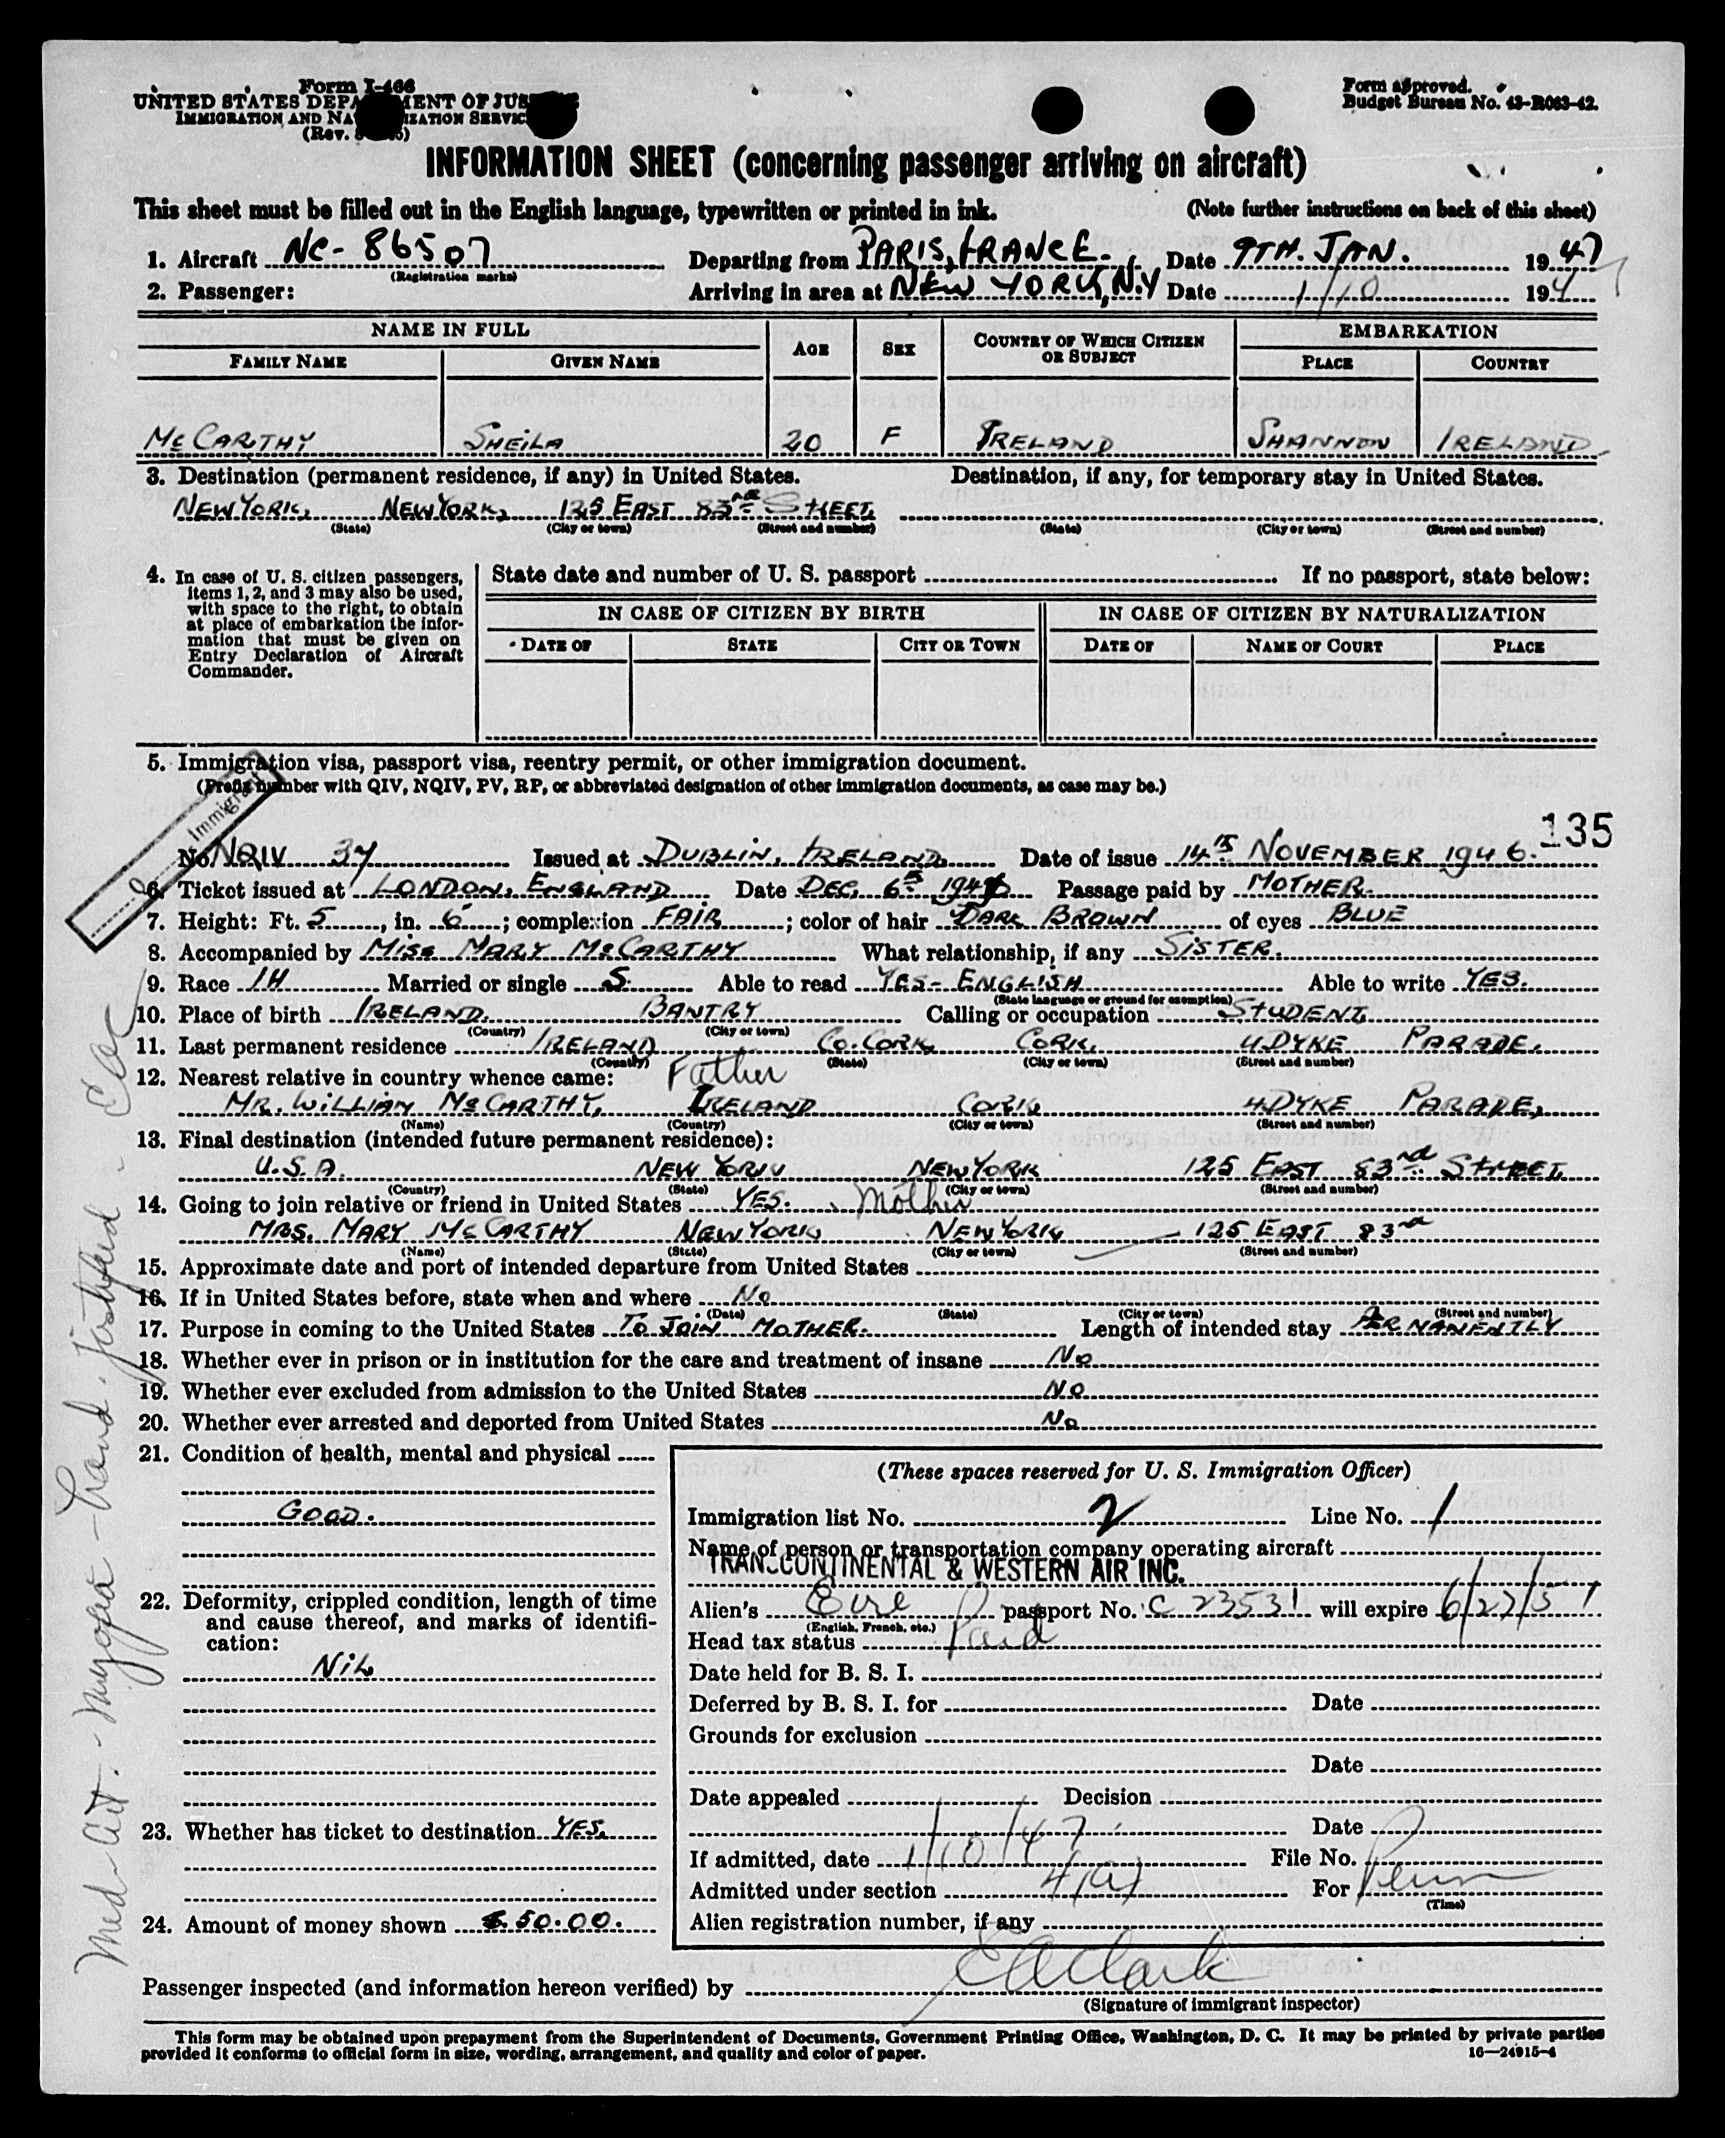 Form I-466
UNITED STATES DEPARTMENT OF JUSTICE
IMMIGRATION AND NATURALIZATION SERVICE
(Rev.
Form approved.
Budget Bureau No. 43-R063-42.
INFORMATION SHEET (concerning passenger arriving on aircraft)
This sheet must be filled out in the English language, typewritten or printed in ink. (Note further instructions on back of this sheet)
1. Aircraft NC-86507 Departing from PARIS, FRANCE. Date 9TH. JAN. 1947
(Registration marks)
2. Passenger: Arriving in area at NEW YORK, N.Y Date 1/10 1947
NAME IN FULL AGE SEX COUNTRY OF WHICH CITIZEN OR SUBJECT EMBARKATION
FAMILY NAME GIVEN NAME PLACE COUNTRY
McCARTHY SHEILA 20 F IRELAND SHANNON IRELAND
3. Destination (permanent residence, if any) in United States. Destination, if any, for temporary stay in United States.
NEW YORK, NEW YORK, 125 EAST 83rd STREET.
(State) (City or town) (Street and number) (State) (City or town) (Street and number)
4. In case of U. S. citizen passengers, items 1, 2, and 3 may also be used, with space to the right, to obtain at place of embarkation the information that must be given on Entry Declaration of Aircraft Commander.
State date and number of U. S. passport If no passport, state below:
IN CASE OF CITIZEN BY BIRTH IN CASE OF CITIZEN BY NATURALIZATION
DATE OF STATE CITY OR TOWN DATE OF NAME OF COURT PLACE
5. Immigration visa, passport visa, reentry permit, or other immigration document.
(Prefix number with QIV, NQIV, PV, RP, or abbreviated designation of other immigration documents, as case may be.)
Immigrant
135
No. NQIV 37 Issued at DUBLIN, IRELAND Date of issue 14th NOVEMBER 1946.
6. Ticket issued at LONDON, ENGLAND Date DEC. 6th 1946 Passage paid by MOTHER.
7. Height: Ft. 5, in. 6; complexion FAIR; color of hair DARK BROWN of eyes BLUE
8. Accompanied by MISS MARY McCARTHY What relationship, if any SISTER.
9. Race IH Married or single S Able to read YES- ENGLISH Able to write YES.
(State language or ground for exemption)
10. Place of birth IRELAND. BANTRY Calling or occupation STUDENT.
(Country) (City or town)
11. Last permanent residence IRELAND CO. CORK CORK. 4 DYKE PARADE.
(Country) (State) (City or town) (Street and number)
12. Nearest relative in country whence came: Father
MR. WILLIAM McCARTHY, IRELAND CORK 4 DYKE PARADE,
(Name) (Country) (City or town) (Street and number)
13. Final destination (intended future permanent residence):
U.S.A. NEW YORK NEW YORK 125 EAST 83rd STREET.
(Country) (State) (City or town) (Street and number)
14. Going to join relative or friend in United States YES. Mother
MRS. MARY McCARTHY NEW YORK NEW YORK 125 EAST 83rd
(Name) (State) (City or town) (Street and number)
15. Approximate date and port of intended departure from United States
16. If in United States before, state when and where No
(Date) (State) (City or town) (Street and number)
17. Purpose in coming to the United States TO JOIN MOTHER. Length of intended stay PERMANENTLY
18. Whether ever in prison or in institution for the care and treatment of insane No
19. Whether ever excluded from admission to the United States NO
20. Whether ever arrested and deported from United States No
21. Condition of health, mental and physical
GOOD.
22. Deformity, crippled condition, length of time and cause thereof, and marks of identification:
NIL
23. Whether has ticket to destination YES.
24. Amount of money shown $50.00.
(These spaces reserved for U. S. Immigration Officer)
Immigration list No. 2 Line No. 1
Name of person or transportation company operating aircraft
TRANSCONTINENTAL & WESTERN AIR INC.
Alien's Eire passport No. C 23531 will expire 6/27/51
(English, French, etc.)
Head tax status Paid
Date held for B. S. I.
Deferred by B. S. I. for Date
Grounds for exclusion
Date
Date appealed Decision
Date
If admitted, date 1/10/47 File No.
Admitted under section 4(a) For Perm
(Time)
Alien registration number, if any
Passenger inspected (and information hereon verified) by EAClark
(Signature of immigrant inspector)
This form may be obtained upon prepayment from the Superintendent of Documents, Government Printing Office, Washington, D. C. It may be printed by private parties
provided it conforms to official form in size, wording, arrangement, and quality and color of paper. 16—24915-4
Med. Cit. - Myopia -